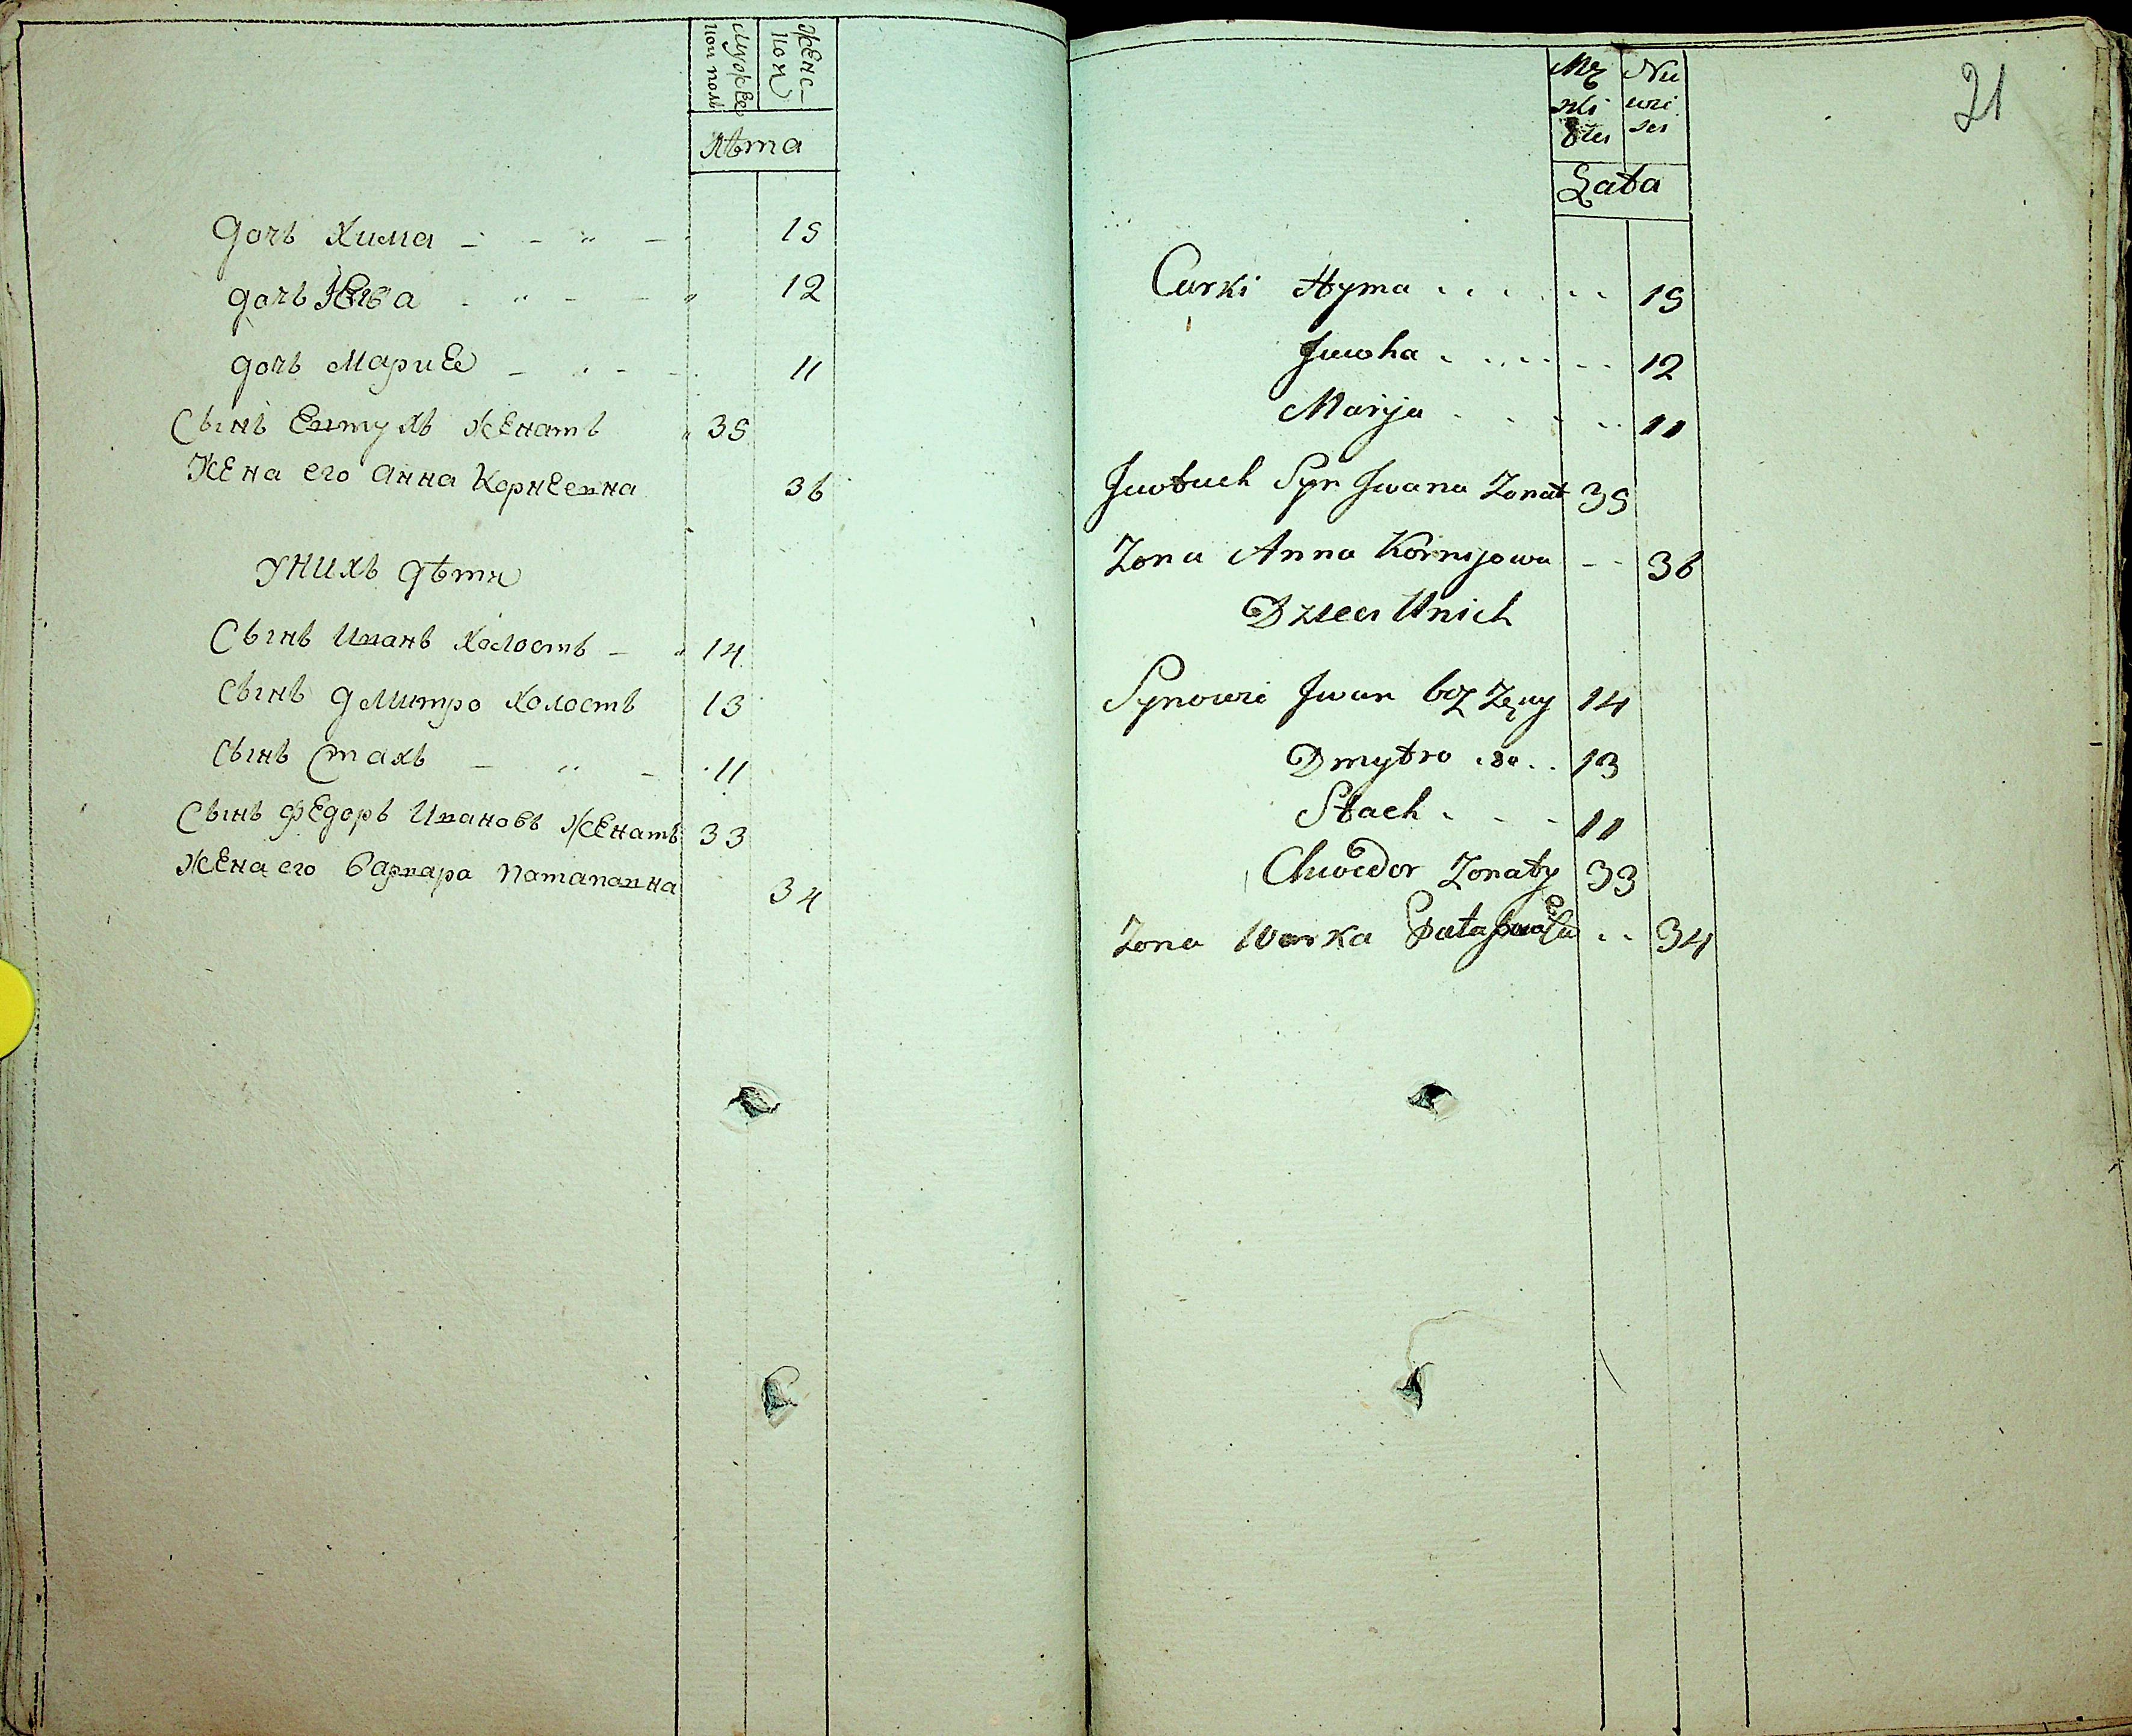 Мужеской полъ
Женской
Лѣта
дочь Хима 15
дочь Ювга 12
дочь Марие 11
Сынъ Евтухъ женатъ 35
Жена его Анна Корнеевна 36
У них дѣти
Сынъ Иванъ холостъ 14
Сынъ Дмитро холостъ 13
Сынъ Стахъ 11
Сынъ Федоръ Ивановъ женатъ 33
Жена его Варвара Патаповна 34
21
Męzki
Niewie
Lata
Curki Hyma 15
Juwha 12
Marya 11
Jewtuch Syn Jwana Zonat 35
Zona Anna Kornijowa 36
Dzieci Unich
Synowie Jwan bez Zęny 14
Dmytro 13
Stach 11
Chwedor Zonaty 33
Zona Warka 34